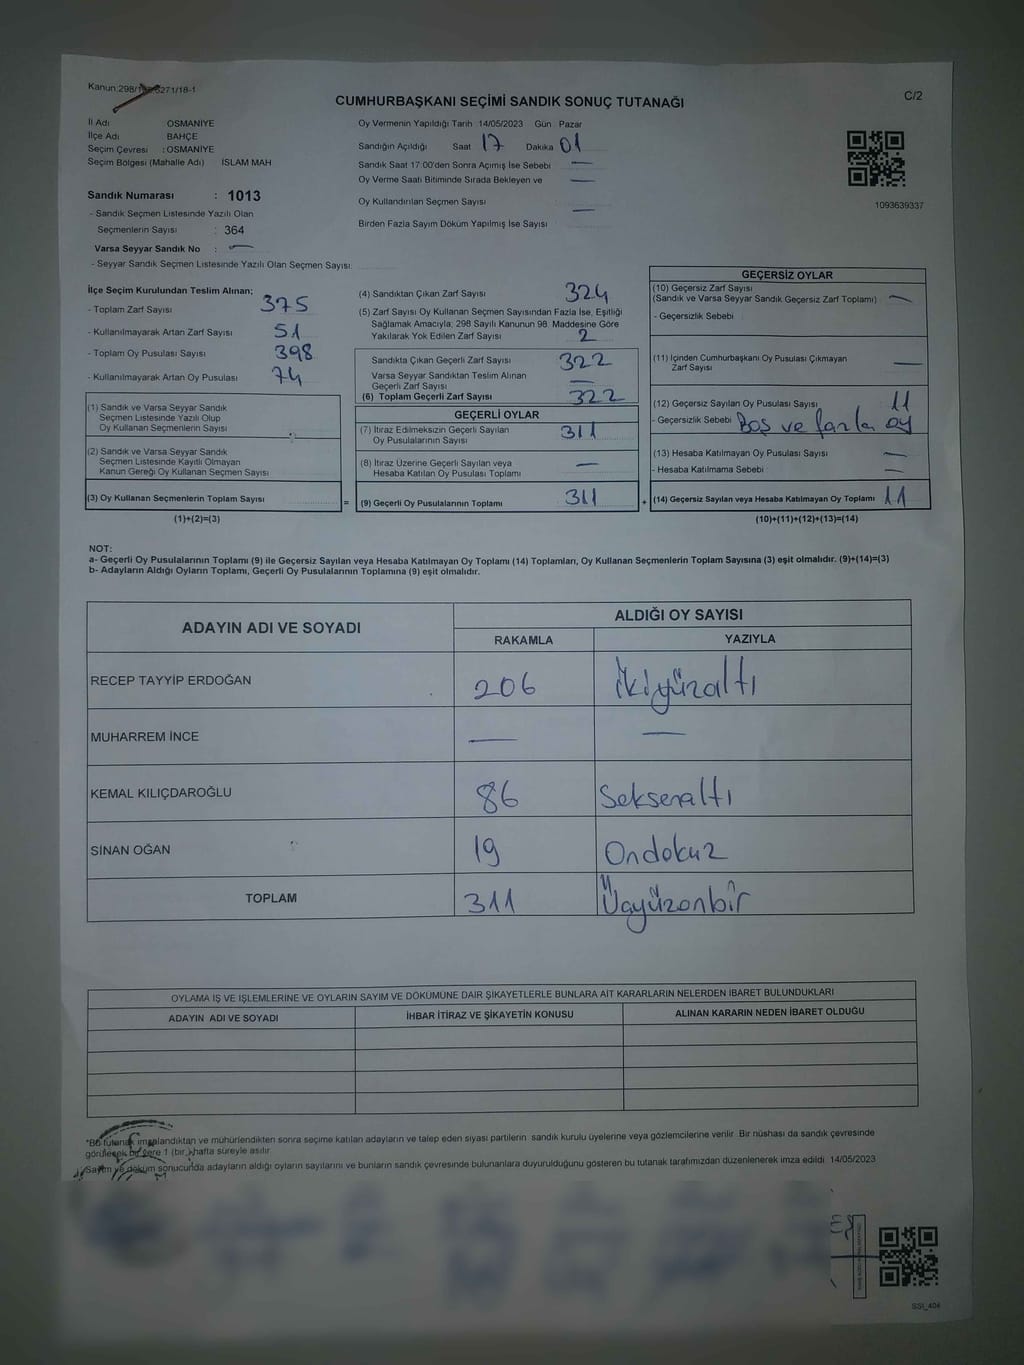 Kanun:298/ 6271/18-1
C/2
CUMHURBAŞKANI SEÇİMİ SANDIK SONUÇ TUTANAĞI
İl Adı : OSMANİYE
İlçe Adı : BAHÇE
Seçim Çevresi : OSMANİYE
Seçim Bölgesi (Mahalle Adı) İSLAM MAH
Sandık Numarası : 1013
- Sandık Seçmen Listesinde Yazılı Olan
Seçmenlerin Sayısı : 364
Varsa Seyyar Sandık No : —
- Seyyar Sandık Seçmen Listesinde Yazılı Olan Seçmen Sayısı:
Oy Vermenin Yapıldığı Tarih 14/05/2023 Gün Pazar
Sandığın Açıldığı Saat 17 Dakika 01
Sandık Saat 17:00'den Sonra Açımış İse Sebebi —
Oy Verme Saati Bitiminde Sırada Bekleyen ve —
Oy Kullandırılan Seçmen Sayısı
Birden Fazla Sayım Döküm Yapılmış İse Sayısı —
1093639337
İlçe Seçim Kurulundan Teslim Alınan;
- Toplam Zarf Sayısı 375
- Kullanılmayarak Artan Zarf Sayısı 51
- Toplam Oy Pusulası Sayısı 398
- Kullanılmayarak Artan Oy Pusulası 74
(1) Sandık ve Varsa Seyyar Sandık
Seçmen Listesinde Yazılı Olup
Oy Kullanan Seçmenlerin Sayısı
(2) Sandık ve Varsa Seyyar Sandık
Seçmen Listesinde Kayıtlı Olmayan
Kanun Gereği Oy Kullanan Seçmen Sayısı
(3) Oy Kullanan Seçmenlerin Toplam Sayısı =
(1)+(2)=(3)
(4) Sandıktan Çıkan Zarf Sayısı 324
(5) Zarf Sayısı Oy Kullanan Seçmen Sayısından Fazla İse, Eşitliği
Sağlamak Amacıyla, 298 Sayılı Kanunun 98. Maddesine Göre
Yakılarak Yok Edilen Zarf Sayısı 2
Sandıkta Çıkan Geçerli Zarf Sayısı 322
Varsa Seyyar Sandıktan Teslim Alınan
Geçerli Zarf Sayısı —
(6) Toplam Geçerli Zarf Sayısı 322
GEÇERLİ OYLAR
(7) İtiraz Edilmeksizin Geçerli Sayılan
Oy Pusulalarının Sayısı 311
(8) İtiraz Üzerine Geçerli Sayılan veya
Hesaba Katılan Oy Pusulası Toplamı —
(9) Geçerli Oy Pusulalarının Toplamı 311 +
GEÇERSİZ OYLAR
(10) Geçersiz Zarf Sayısı
(Sandık ve Varsa Seyyar Sandık Geçersiz Zarf Toplamı) —
- Geçersizlik Sebebi
(11) İçinden Cumhurbaşkanı Oy Pusulası Çıkmayan
Zarf Sayısı —
(12) Geçersiz Sayılan Oy Pusulası Sayısı 11
- Geçersizlik Sebebi Boş ve fazla oy
(13) Hesaba Katılmayan Oy Pusulası Sayısı —
- Hesaba Katılmama Sebebi —
(14) Geçersiz Sayılan veya Hesaba Katılmayan Oy Toplamı 11
(10)+(11)+(12)+(13)=(14)
NOT:
a- Geçerli Oy Pusulalarının Toplamı (9) ile Geçersiz Sayılan veya Hesaba Katılmayan Oy Toplamı (14) Toplamları, Oy Kullanan Seçmenlerin Toplam Sayısına (3) eşit olmalıdır. (9)+(14)=(3)
b- Adayların Aldığı Oyların Toplamı, Geçerli Oy Pusulalarının Toplamına (9) eşit olmalıdır.
ADAYIN ADI VE SOYADI
ALDIĞI OY SAYISI
RAKAMLA YAZIYLA
RECEP TAYYİP ERDOĞAN 206 İkiyüzaltı
MUHARREM İNCE — —
KEMAL KILIÇDAROĞLU 86 Seksenaltı
SİNAN OĞAN 19 Ondokuz
TOPLAM 311 Üçyüzonbir
OYLAMA İŞ VE İŞLEMLERİNE VE OYLARIN SAYIM VE DÖKÜMÜNE DAİR ŞİKAYETLERLE BUNLARA AİT KARARLARIN NELERDEN İBARET BULUNDUKLARI
ADAYIN ADI VE SOYADI İHBAR İTİRAZ VE ŞİKAYETİN KONUSU ALINAN KARARIN NEDEN İBARET OLDUĞU
*Bu tutanak imzalandıktan ve mühürlendikten sonra seçime katılan adayların ve talep eden siyasi partilerin sandık kurulu üyelerine veya gözlemcilerine verilir. Bir nüshası da sandık çevresinde
görülecek bir yere 1 (bir) hafta süreyle asılır.
Sayım ve döküm sonucunda adayların aldığı oyların sayılarını ve bunların sandık çevresinde bulunanlara duyurulduğunu gösteren bu tutanak tarafımızdan düzenlenerek imza edildi. 14/05/2023
SSİ_404